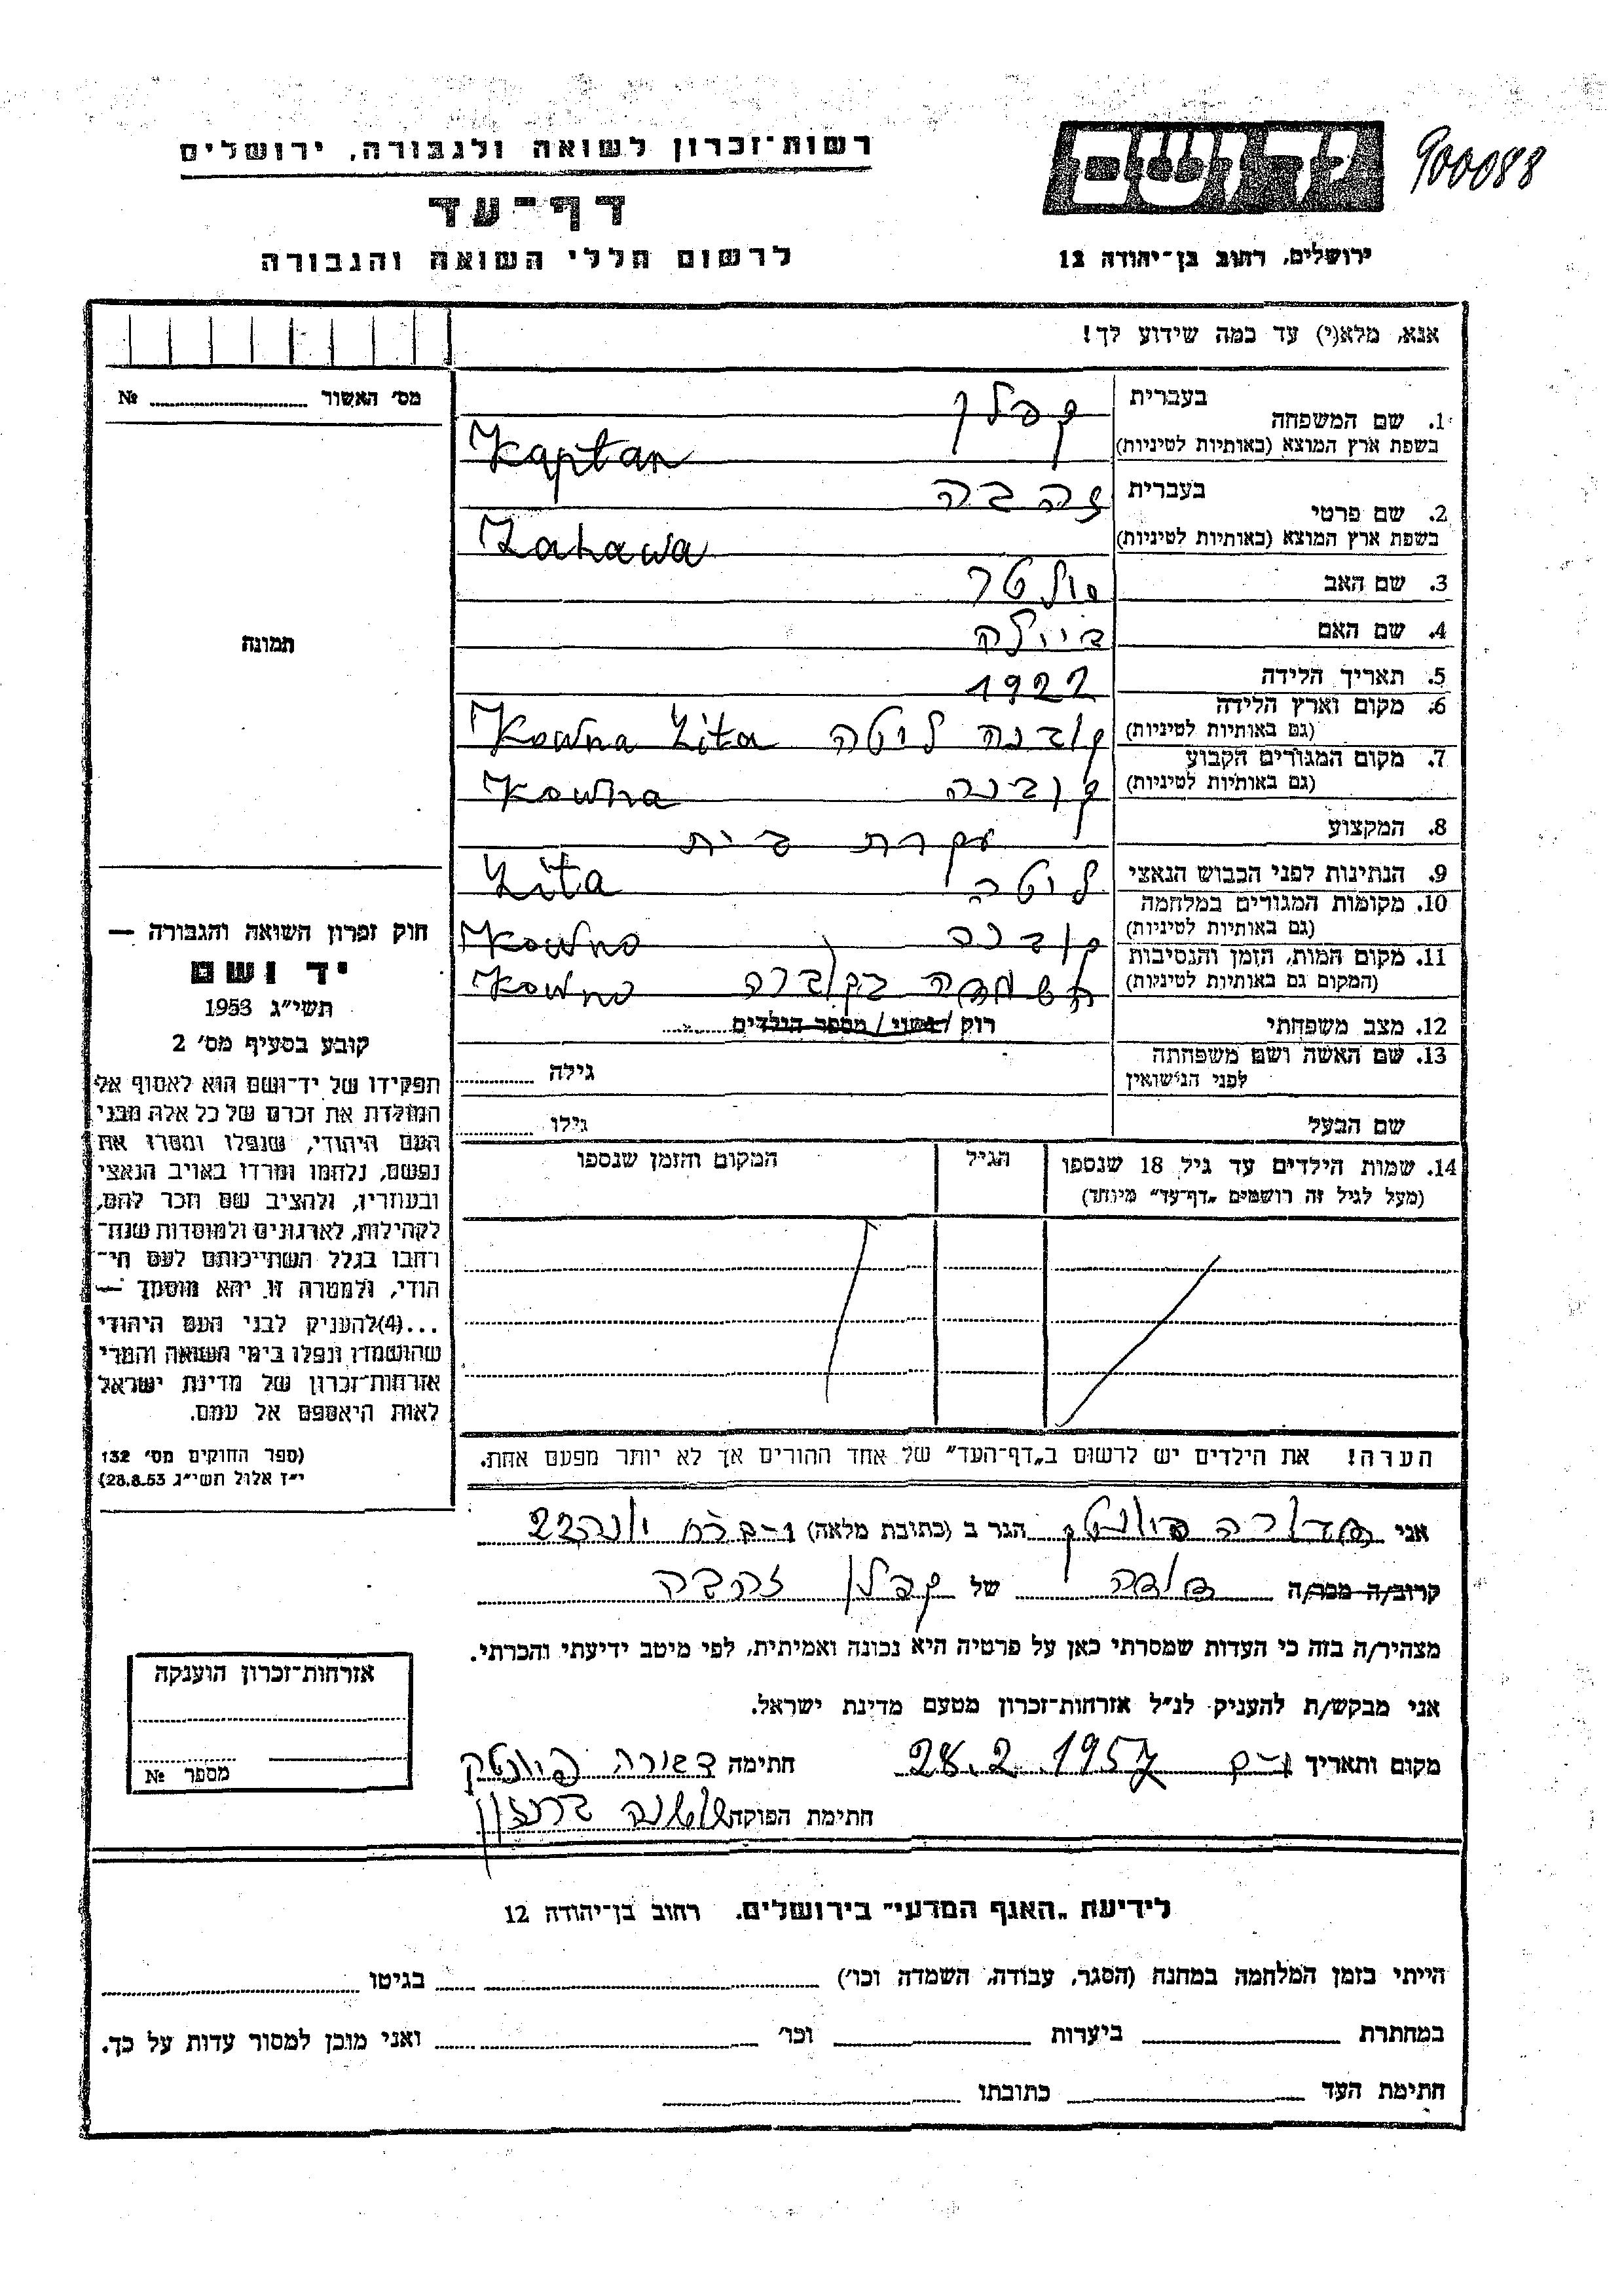 רשות־זכרון לשואה ולגבורה, ירושלים
יד ושם
900088
דף־עד
לרשום חללי השואה והגבורה
ירושלים, רחוב בן־יהודה 12
אנא, מלא(י) עד כמה שידוע לך!
מס' האשור № 
1. שם המשפחה בעברית קפלן
בשפת ארץ המוצא (באותיות לטיניות) Kaplan
2. שם פרטי בעברית זהבה
בשפת ארץ המוצא (באותיות לטיניות) Zahawa
3. שם האב
4. שם האם
5. תאריך הלידה 1922
6. מקום וארץ הלידה קובנה ליטה Kowna Lita
(גם באותיות לטיניות)
7. מקום המגורים הקבוע קובנה Kowna
(גם באותיות לטיניות)
8. המקצוע עקרת בית
9. הנתינות לפני הכבוש הנאצי ליטה Lita
10. מקומות המגורים במלחמה קובנה Kowno
(גם באותיות לטיניות)
11. מקום המות, הזמן והנסיבות בקובנה Kowno
(המקום גם באותיות לטיניות)
12. מצב משפחתי רוק / נשוי / מספר הילדים
13. שם האשה ושם משפחתה גילה
לפני הנישואין
שם הבעל גילו
14. שמות הילדים עד גיל 18 שנספו הגיל המקום והזמן שנספו
(מעל לגיל זה רושמים „דף־עד" מיוחד)
הערה! את הילדים יש לרשום ב„דף־העד" של אחד ההורים אך לא יותר מפעם אחת.
תמונה
חוק זכרון השואה והגבורה —
יד ושם
תשי"ג 1953
קובע בסעיף מס' 2
תפקידו של יד־ושם הוא לאסוף אל
המולדת את זכרם של כל אלה מבני
העם היהודי, שנפלו ומסרו את
נפשם, נלחמו ומרדו באויב הנאצי
ובעוזריו, ולהציב שם וזכר להם,
לקהילות, לארגונים ולמוסדות שנח־
רבו בגלל השתייכותם לעם הי־
הודי, ולמטרה זו יהא מוסמך —
...(4) להעניק לבני העם היהודי
שהושמדו ונפלו בימי השואה והמרי
אזרחות־זכרון של מדינת ישראל
לאות היאספם אל עמם.
(ספר החוקים מס' 132
י"ז אלול תשי"ג 28.8.53)
אני הגר ב (כתובת מלאה) 22
קרוב/ה מכר/ה דודה של קפלן זהבה
מצהיר/ה בזה כי העדות שמסרתי כאן על פרטיה היא נכונה ואמיתית, לפי מיטב ידיעתי והכרתי.
אני מבקש/ת להעניק לנ"ל אזרחות־זכרון מטעם מדינת ישראל.
מקום ותאריך 28.2.1957 חתימה
חתימת הפוקד שושנה
אזרחות־זכרון הוענקה
מספר №
לידיעת „האגף המדעי" בירושלים, רחוב בן־יהודה 12
הייתי בזמן המלחמה במחנה (הסגר, עבודה, השמדה וכו') בגיטו
במחתרת ביערות וכו' ואני מוכן למסור עדות על כך.
חתימת העד כתובתו